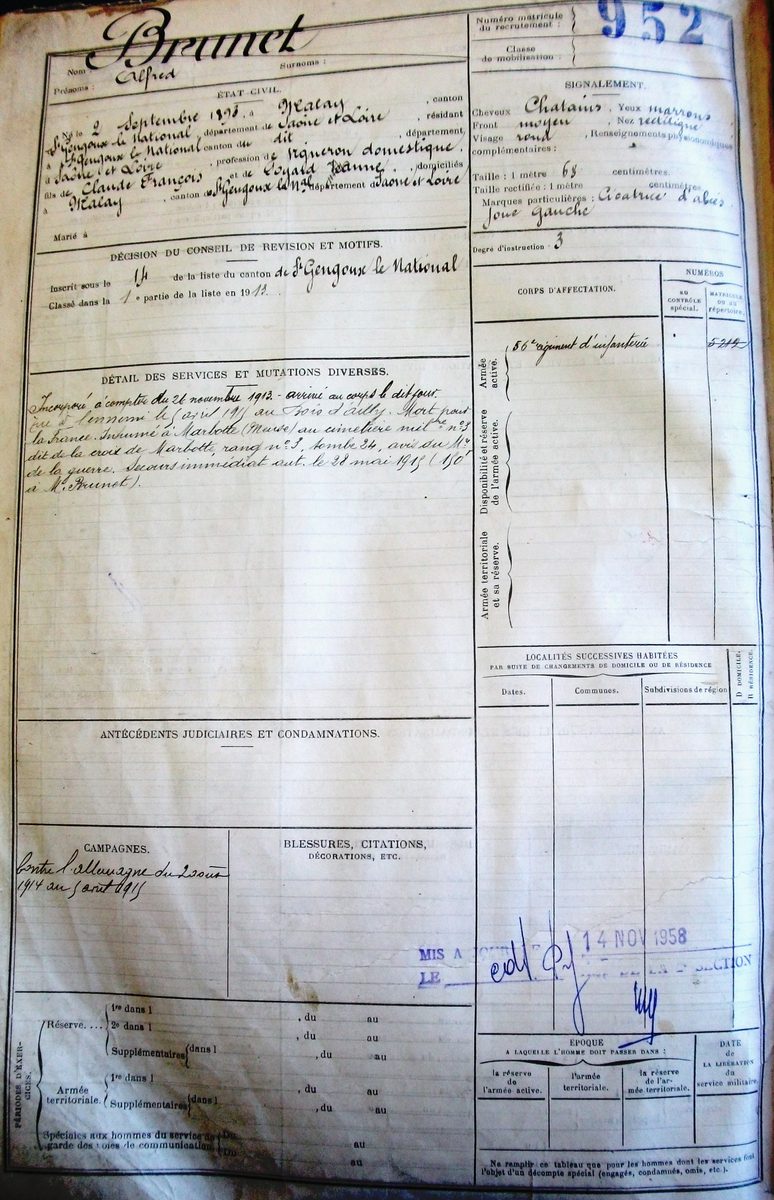 Brunet
Nom :
Surnoms :
Prénoms : Alfred
ÉTAT CIVIL.
Né le 2 Septembre 1893, à Malay, canton
St Gengoux le National, département de Saône et Loire, résidant
à St Gengoux le National canton du dit, département
à Saône et Loire, profession de Vigneron domestique,
fils de Claude François et de Jeanne, domiciliés
à Malay, canton de St Gengoux le Nal département de Saône et Loire
Marié à
DÉCISION DU CONSEIL DE REVISION ET MOTIFS.
Inscrit sous le 14 de la liste du canton de St Gengoux le National
Classé dans la 1e partie de la liste en 1913.
DÉTAIL DES SERVICES ET MUTATIONS DIVERSES.
Incorporé à compter du novembre 1913 - arrivé au corps le dit jour.
à l'ennemi le 5 avril 1915 au Bois d'Ailly. Mort pour
la France. Inhumé à Marbotte (Meuse) au cimetière milre n°3
dit de la croix de Marbotte, rang n°3, tombe 24, avis du Mre
de la guerre. Secours immédiat aut. le 28 mai 1915 (150f
à Mr Brunet).
ANTÉCÉDENTS JUDICIAIRES ET CONDAMNATIONS.
CAMPAGNES.
Contre l'allemagne du 2 août
1914 au 5 1915
BLESSURES, CITATIONS,
DÉCORATIONS, ETC.
PÉRIODES D'EXERCICES.
Réserve....
1re dans l , du au
2e dans l , du au
Supplémentaires dans l , du au
Armée
territoriale.
1re dans l , du au
Supplémentaires dans l , du au
Spéciales aux hommes du service de
garde des voies de communication.
Du au
Du au
Numéro matricule
du recrutement :
952
Classe
de mobilisation :
SIGNALEMENT.
Cheveux Chatains. Yeux marrons
Front moyen, Nez rectiligne
Visage rond, Renseignements physionomiques
complémentaires :
Taille : 1 mètre 68 centimètres.
Taille rectifiée : 1 mètre centimètres
Marques particulières : Cicatrice d'abcès
Joue Gauche
Degré d'instruction : 3
CORPS D'AFFECTATION.
NUMÉROS
AU
CONTRÔLE
spécial.
MATRICULE
OU AU
répertoire.
Armée
active.
56e régiment d'infanterie
Disponibilité et réserve
de l'armée active.
Armée territoriale
et sa réserve.
LOCALITÉS SUCCESSIVES HABITÉES
PAR SUITE DE CHANGEMENTS DE DOMICILE OU DE RÉSIDENCE
Dates.
Communes.
Subdivisions de région
D DOMICILE.
R RÉSIDENCE.
MIS A JOUR
14 NOV 1958
LE
DE LA SECTION
ÉPOQUE
A LAQUELLE L'HOMME DOIT PASSER DANS :
la réserve
de
l'armée active.
l'armée
territoriale.
la réserve
de l'ar-
mée territoriale.
DATE
de
LA LIBÉRATION
du
service militaire.
Ne remplir ce tableau que pour les hommes dont les services font
l'objet d'un décompte spécial (engagés, condamnés, omis, etc.).